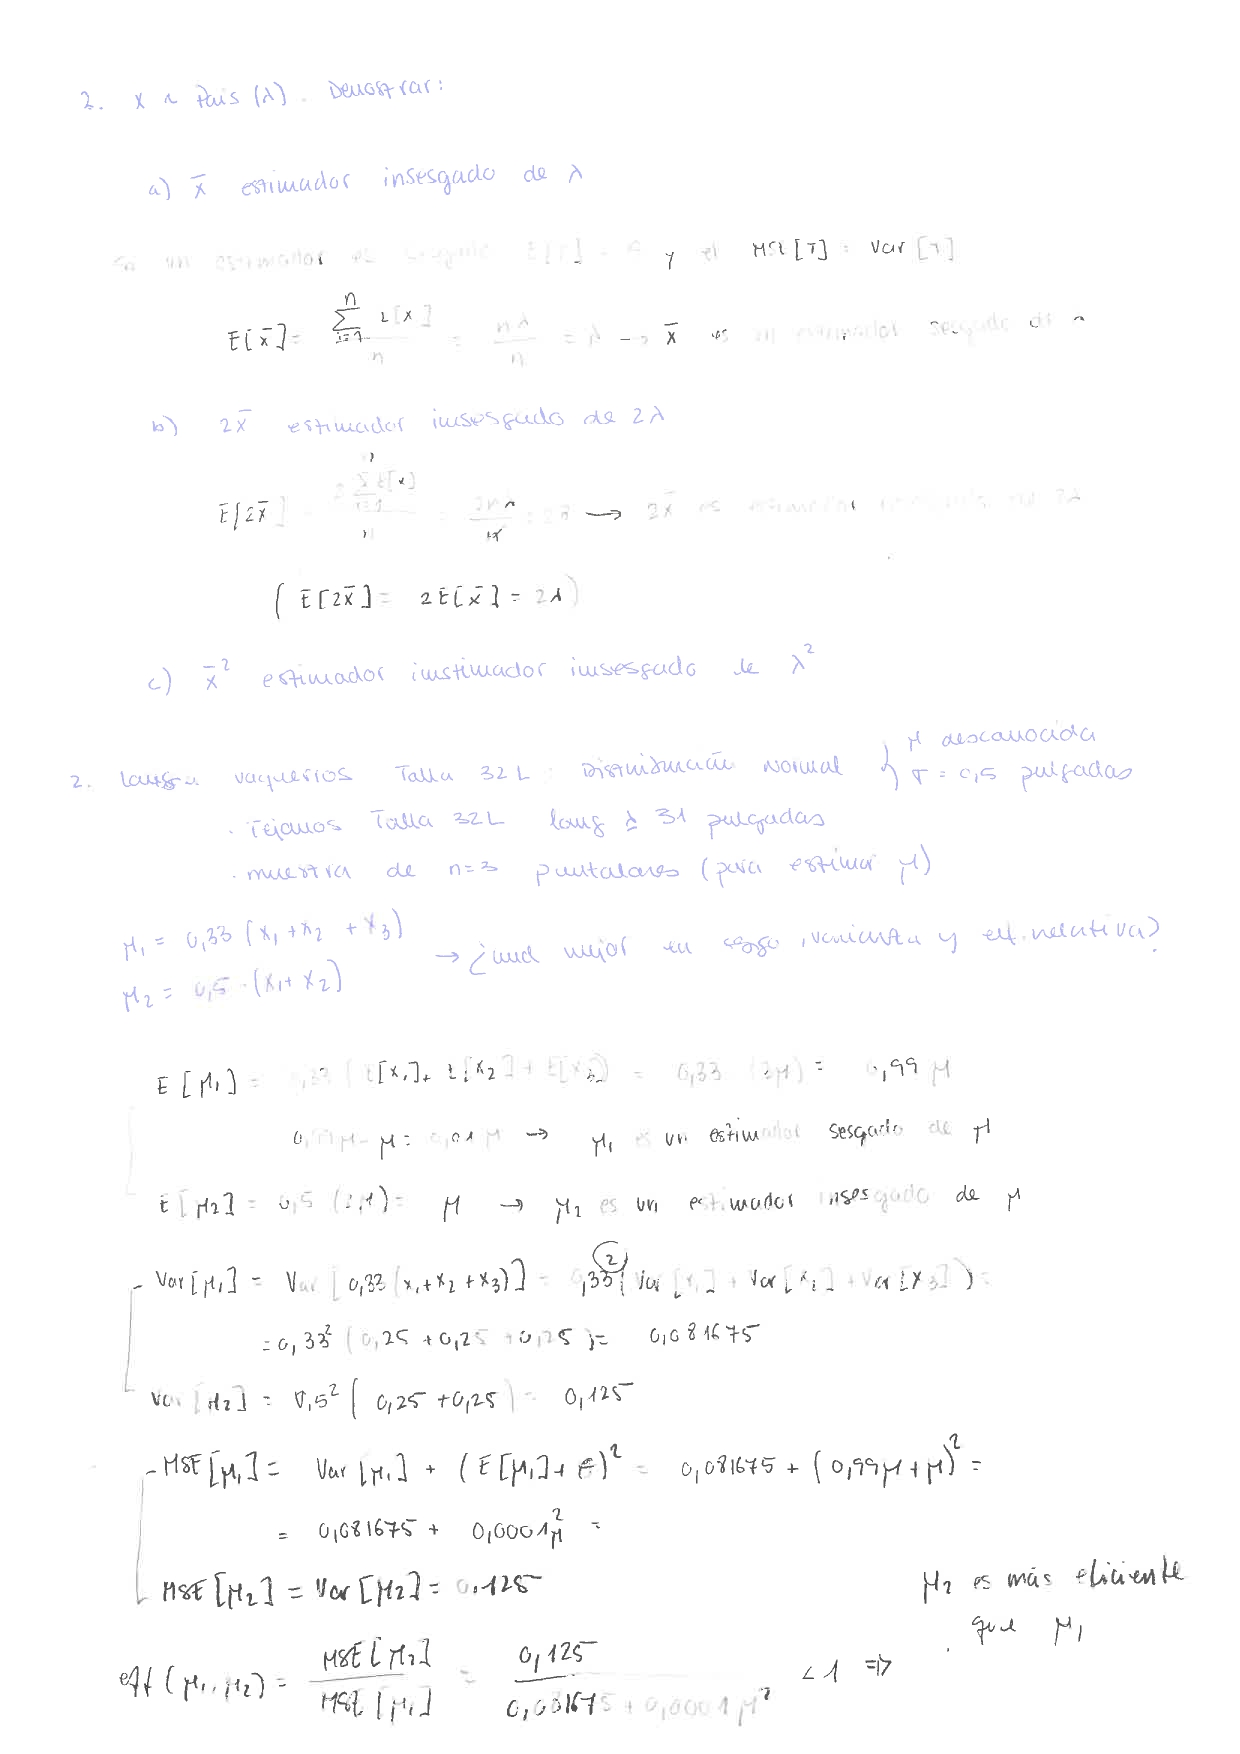 2. x ~ Pois (λ). Demostrar:
a) x̄ estimador insesgado de λ
un estimador y el MSE[T] = Var[T]
E[x̄] = ∑ i=1 n E[x] / n = nλ / n = λ → x̄ es un estimador sesgado de λ
b) 2x̄ estimador insesgado de 2λ
E[2x̄] = 2 ∑ i=1 n E[x] / n = 2nλ / n = 2λ → 2x̄ es estimador 2λ
( E[2x̄] = 2E[x̄] = 2λ)
c) x̄² estimador instimador insesgado de λ²
2. vaqueiros Talla 32L : Distribução Normal { μ desconocida
σ = 0,5 pulgadas
· Tejanos Talla 32L long ≥ 31 pulgadas
· muestra de n=3 pantalones (para estimar μ)
μ₁ = 0,33 (x₁+x₂ +x₃)
μ₂ = 0,5 · (x₁+x₂) → ¿cual mejor en sesgo, varianza y ef. relativa?
E[μ₁] = 0,33 ( E[x₁]+ E[x₂] + E[x₃]) = 0,33 (3μ) = 0,99 μ
0,99μ - μ = 0,01 μ → μ₁ es un estimador sesgado de μ
E[μ₂] = 0,5 (2μ) = μ → μ₂ es un estimador insesgado de μ
- Var[μ₁] = Var[0,33 (x₁+x₂+x₃)] = 0,33² (Var[x₁] + Var[x₂] + Var[x₃]) =
= 0,33² (0,25 + 0,25 + 0,25) = 0,081675
Var[μ₂] = 0,5² ( 0,25 +0,25) = 0,125
- MSE[μ₁] = Var[μ₁] + (E[μ₁]+ θ)² = 0,081675 + (0,99μ+μ)² =
= 0,081675 + 0,0001μ² =
MSE[μ₂] = Var[μ₂] = 0,125
eff(μ₁,μ₂) = MSE[μ₂] / MSE[μ₁] = 0,125 / 0,081675 + 0,0001μ² < 1 ⇒ μ₂ es más eficiente
que μ₁